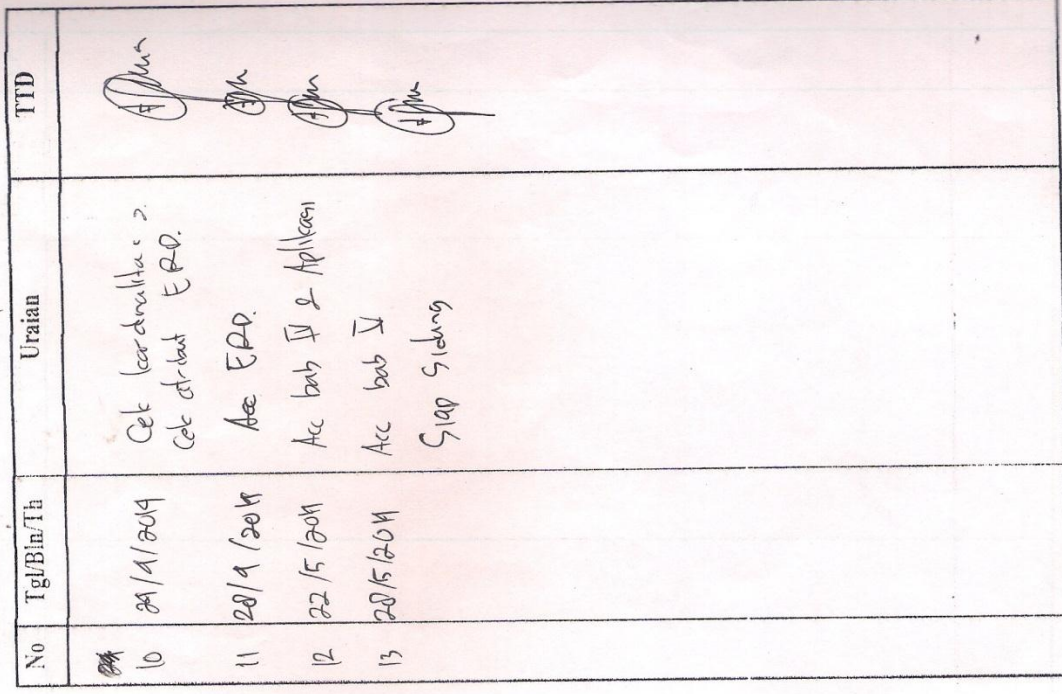 No Tgl/Bln/Th Uraian TTD
10 24/4/2014 Cek kardinalitas 2.
Cek atribut ERD.
11 28/4/2014 Acc ERD.
12 22/5/2014 Acc bab IV & Aplikasi
13 28/5/2014 Acc bab V
Siap Sidang